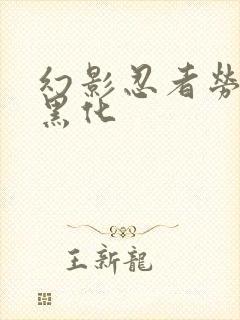 幻影忍者劳
黑化
王新龍